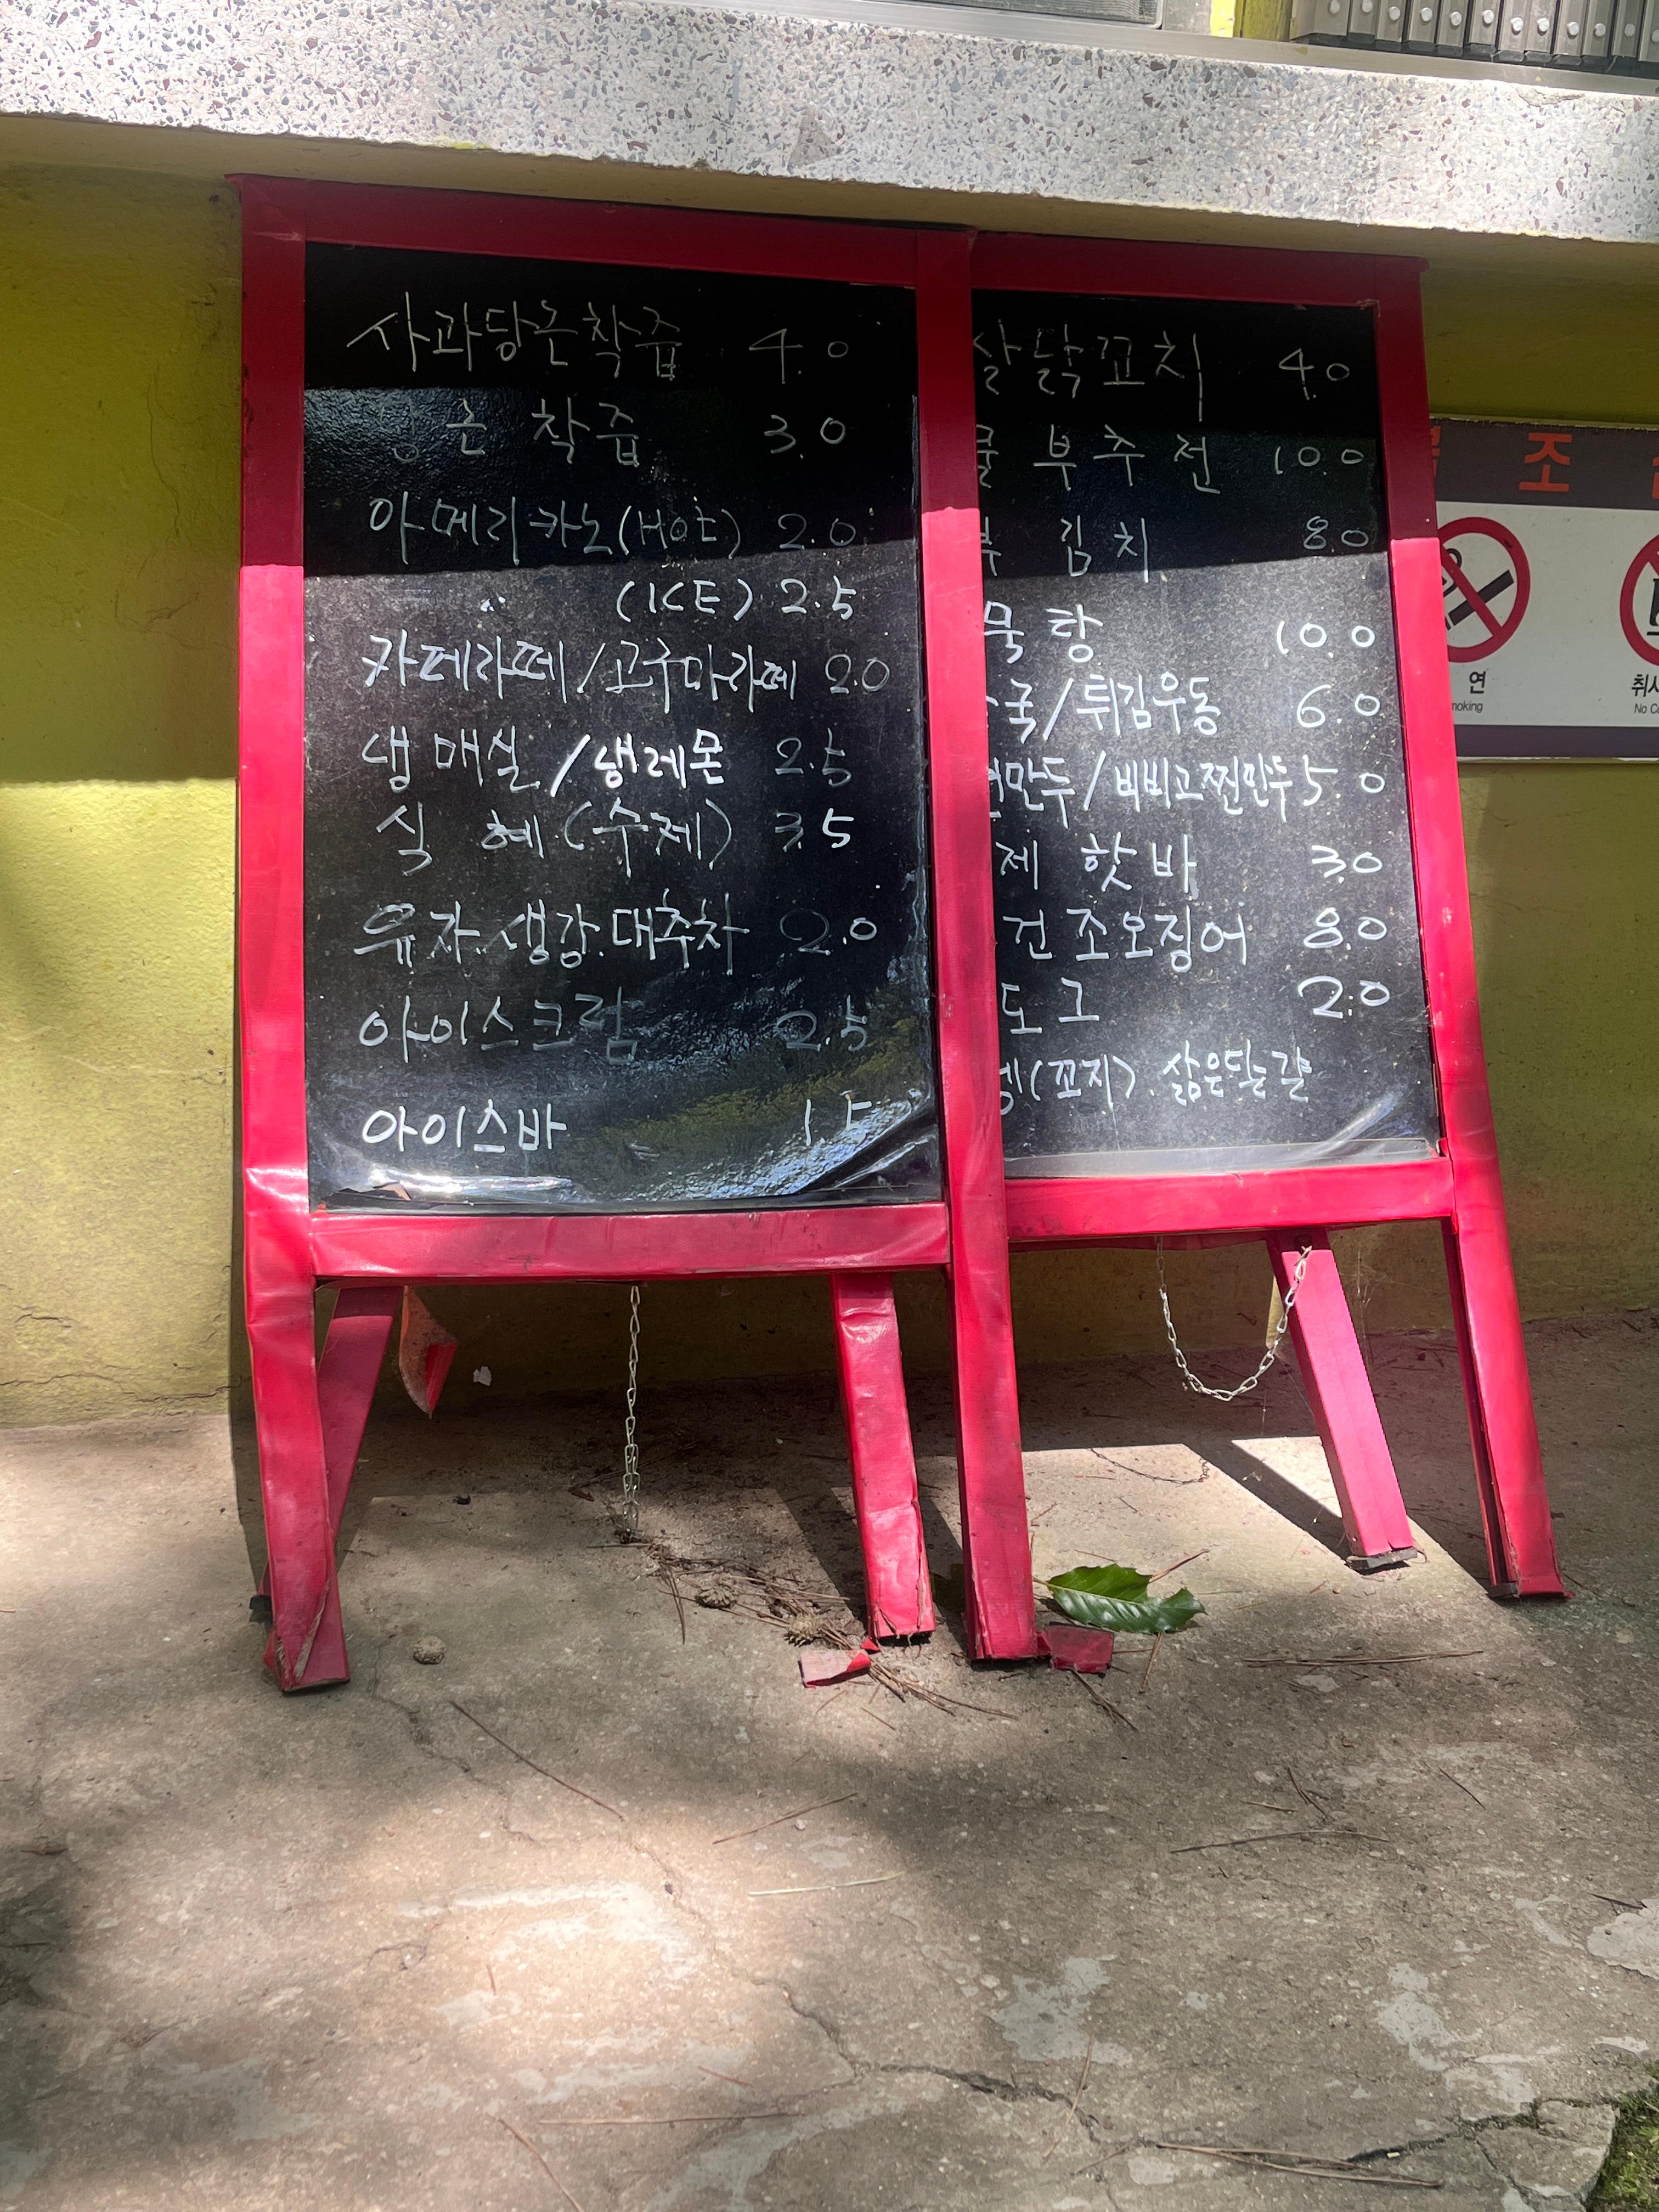 사과당근착즙 4.0
근 착즙 3.0
아메리카노(HOt) 2.0
〃 (ICE) 2.5
카페라떼/고구마라떼 2.0
냉매실/냉레몬 2.5
식 혜(수제) 3.5
유자.생강.대추차 2.0
아이스크림 2.5
아이스바 1.5
살닭꼬치 4.0
물 부추전 10.0
부 김치 8.0
묵탕 10.0
국/튀김우동 6.0
만두/비비고찐만두 5.0
제 핫바 3.0
건조오징어 8.0
도그 2.0
(꼬지). 삶은달걀
조
연
moking
취사
No C